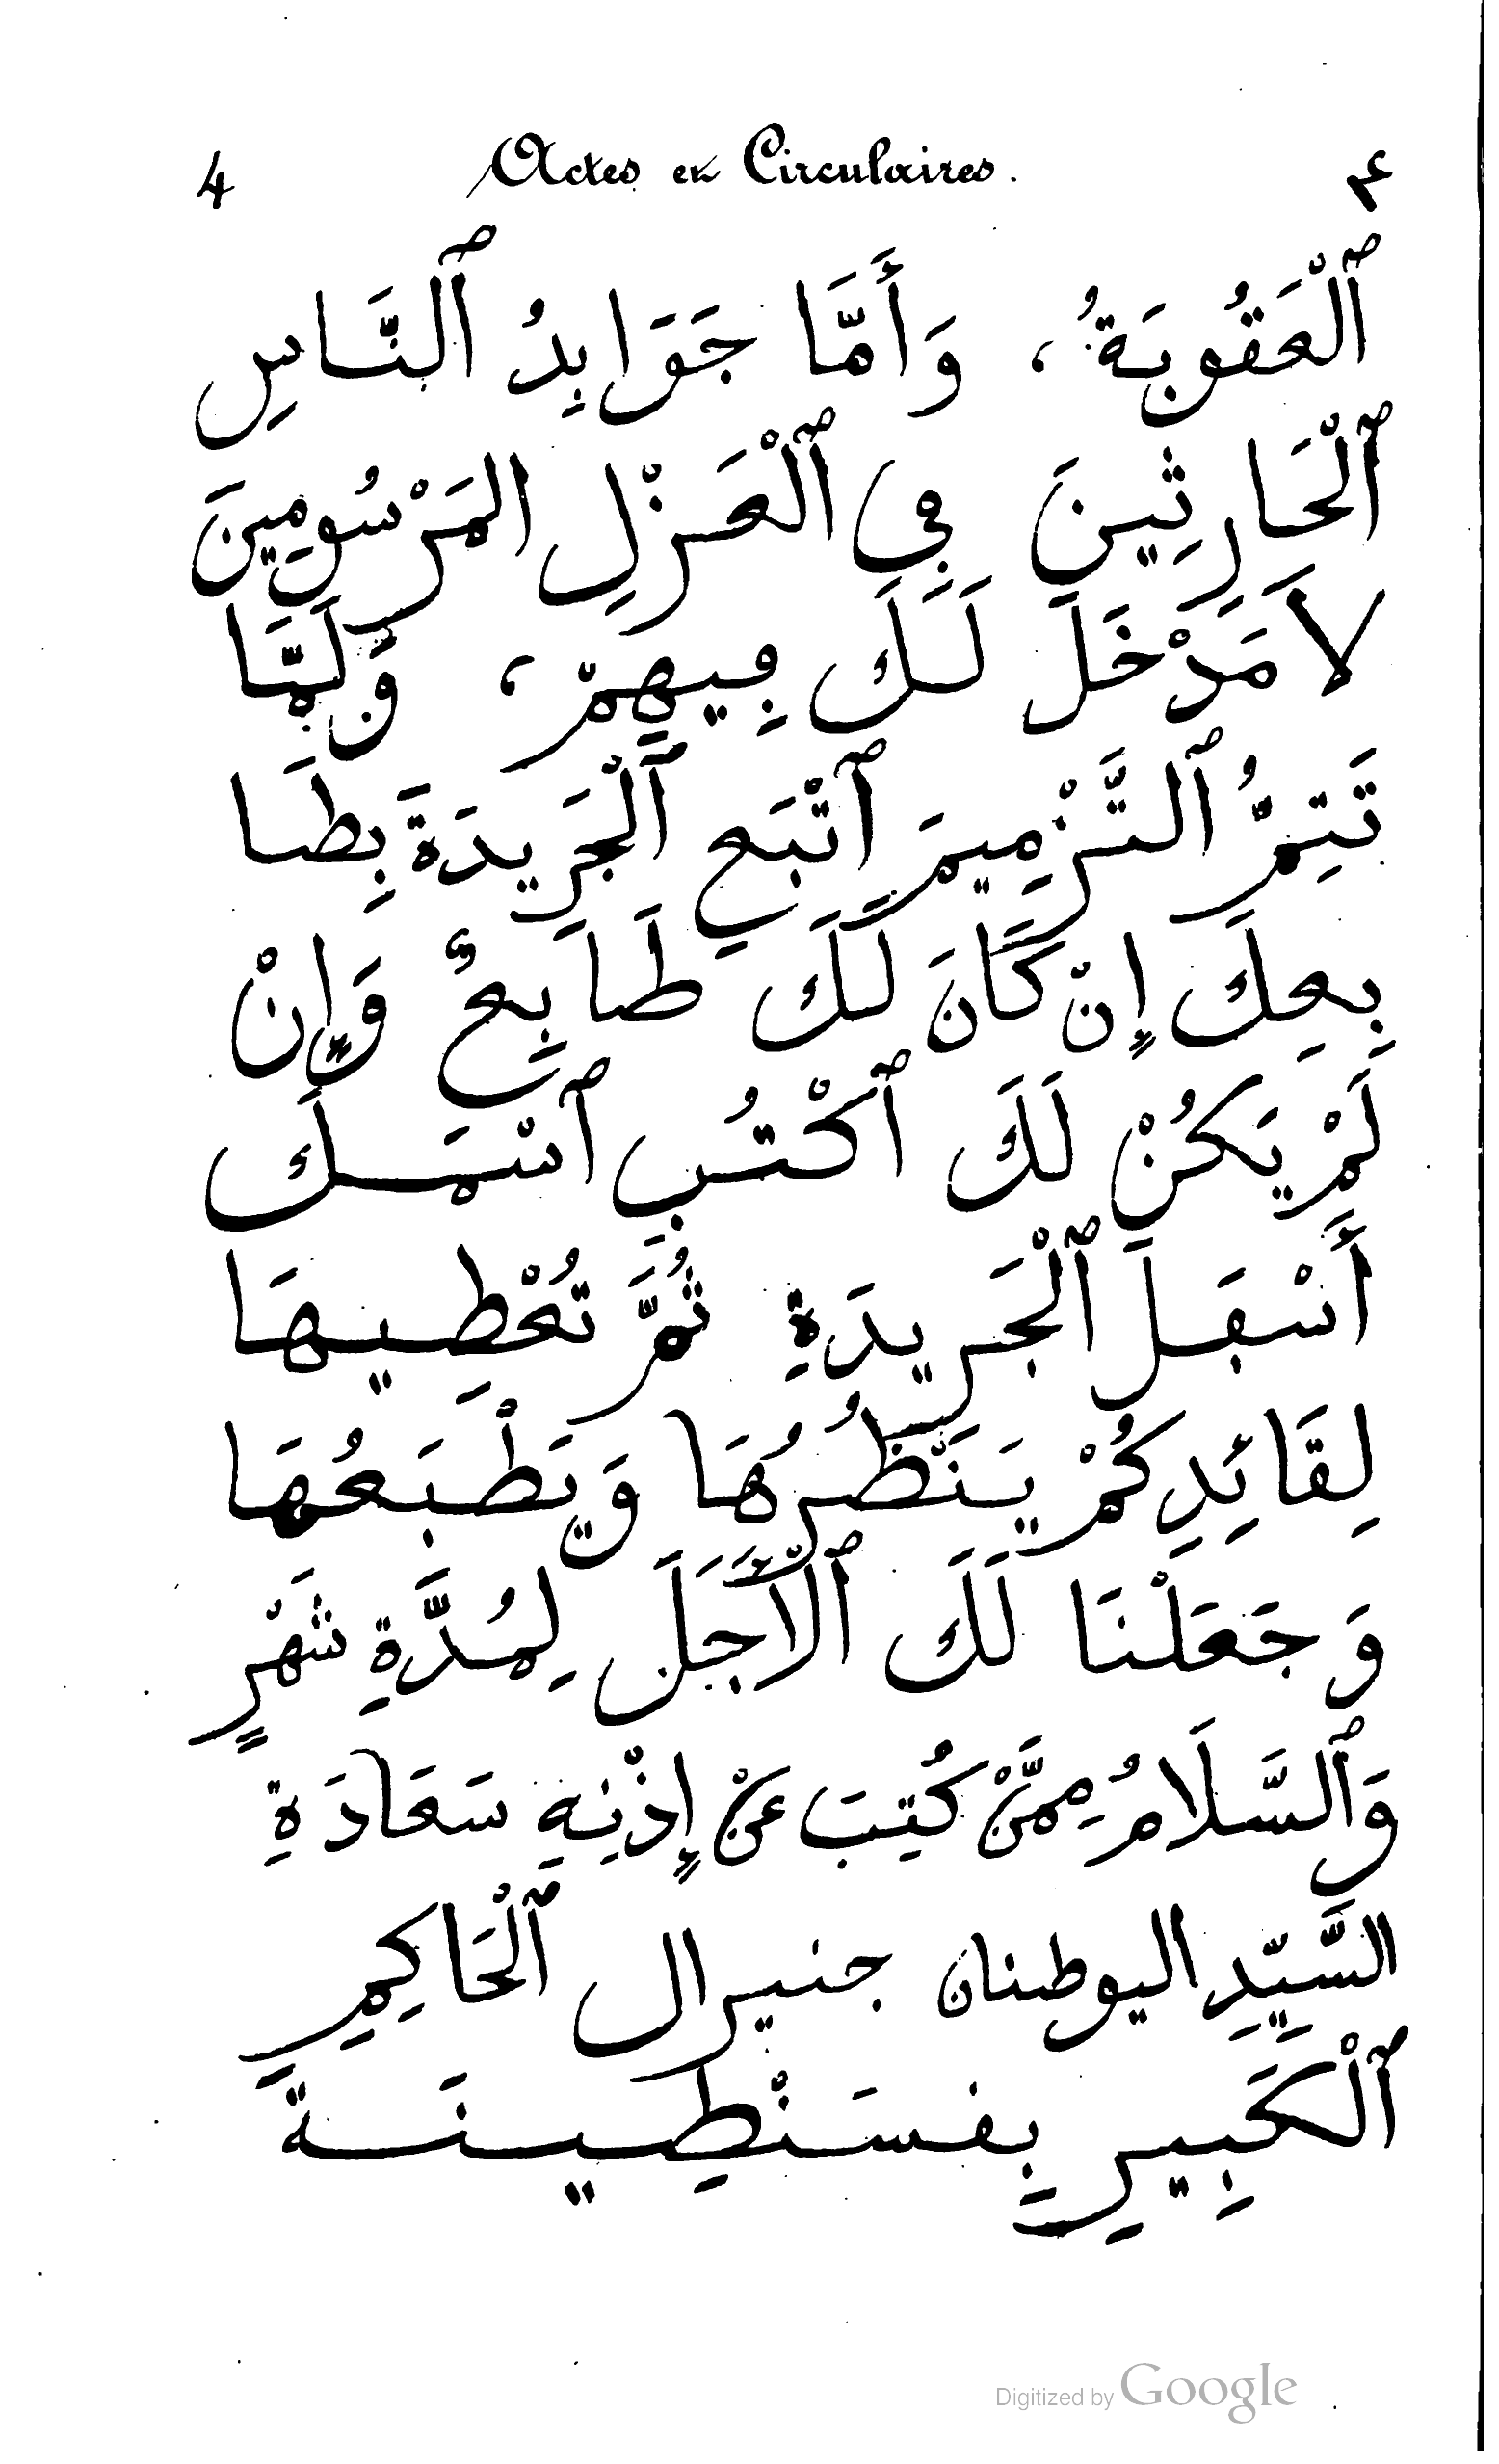 4 Actes et Circulaires. ۴
ٱلْعَقُوبَةُ ، وَأَمَّا جَوَابِدُ ٱلنَّاسِ
ٱلْحَارِثِينَ فِي ٱلْعَزْلِ المَرْسُومِينَ
لَا مَدْخَلَ لَكَ فِيهِمْ ، وَلَمَّا
تَتِمُّ ٱلتَّزْمِيمَ ٱتْبَعِ ٱلْجَرِيدَةَ بِطَا
بِعِكَ إِنْ كَانَ لَكَ طَابِعٌ وَإِنْ
لَمْ يَكُنْ لَكَ ٱكْتُبِ ٱسْمَكَ
أَسْفَلَ ٱلْجَرِيدَةِ ثُمَّ تُعْطِيهَا
لِقَائِدِكُمْ يَنْظُرُهَا وَيَطْبَعُهَا
وَجَعَلْنَا لَكَ ٱلْأَجَلَ لِمُدَّةِ شَهْرٍ
وَٱلسَّلَامُ مِمَّنْ كُتِبَ عَنْ إِذْنِهِ سَعَادَةِ
السَّيِّدِ اليوطنان جنيرال ٱلْحَاكِمِ
ٱلْكَبِيرِ بِفسَنْطِينَةَ
Digitized by Google